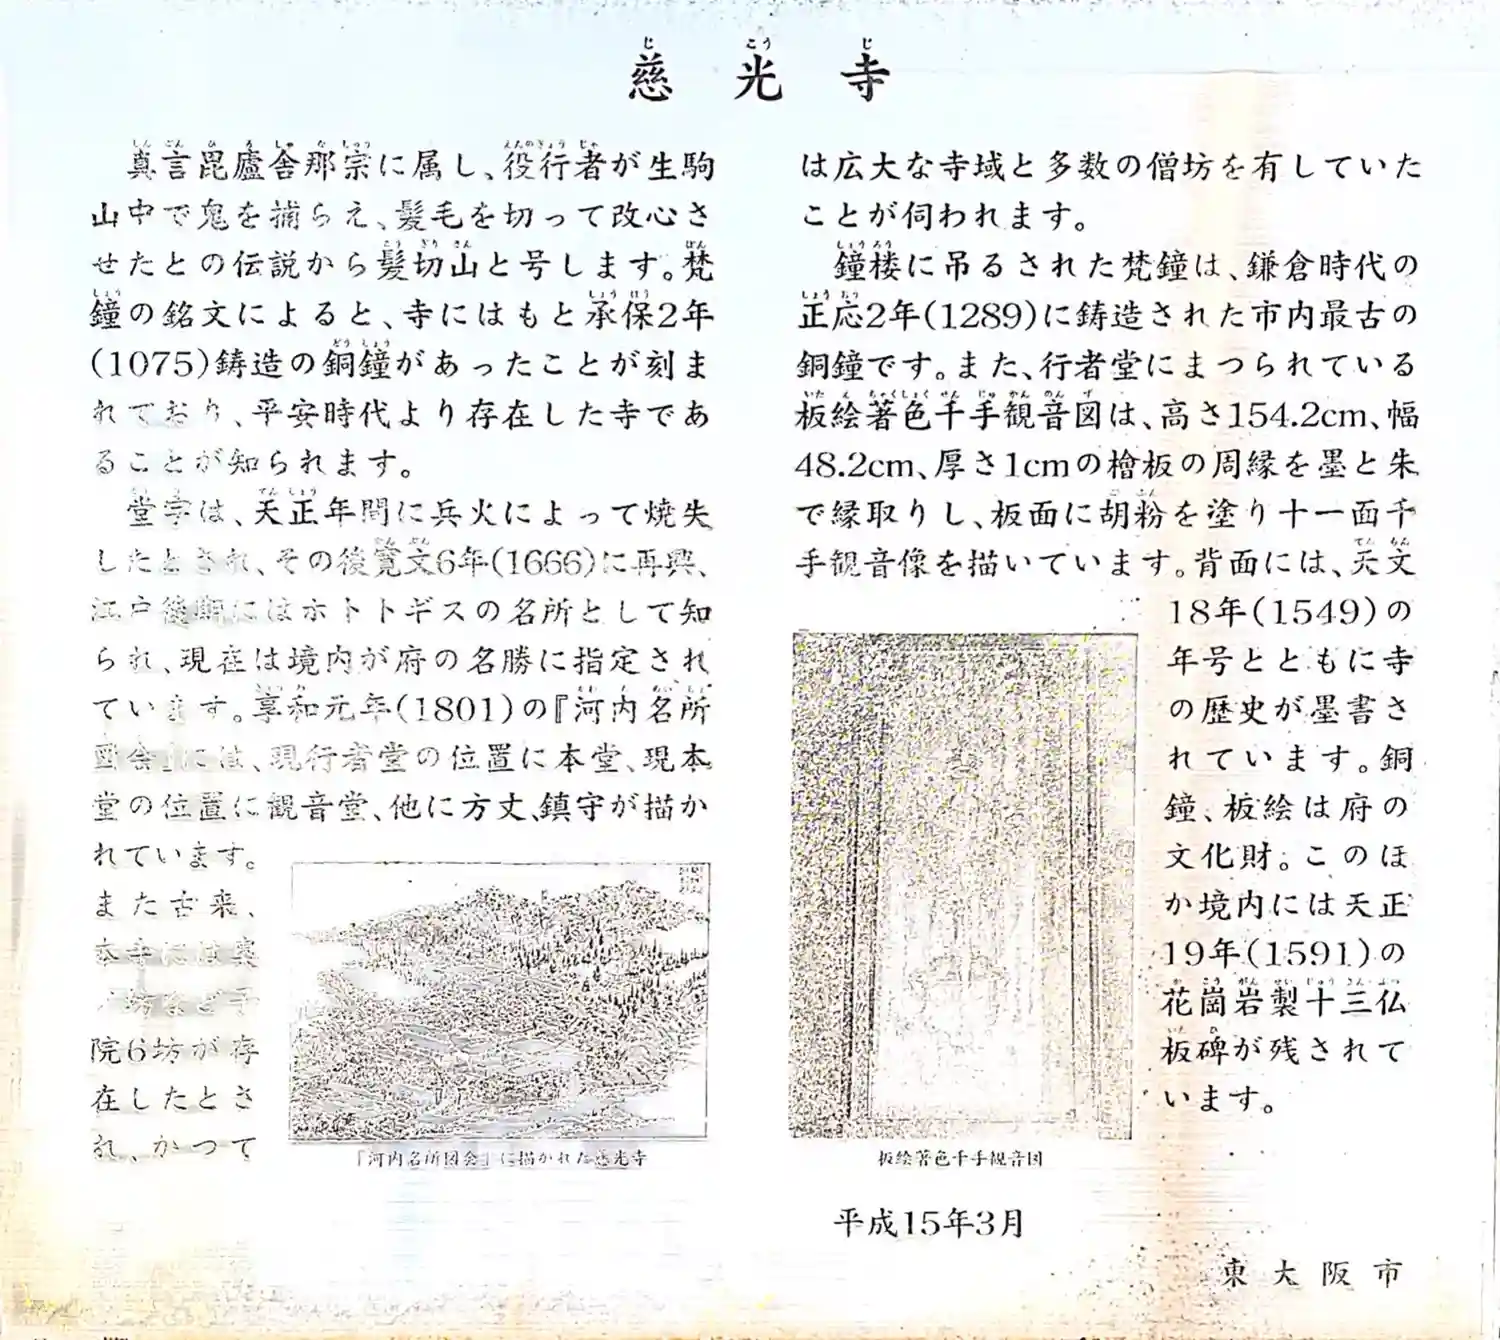 慈光寺
真言毘盧舎那宗に属し、役行者が生駒
山中で鬼を捕らえ、髪毛を切って改心さ
せたとの伝説から髪切山と号します。梵
鐘の銘文によると、寺にはもと承保2年
(1075)鋳造の銅鐘があったことが刻ま
れており、平安時代より存在した寺であ
ることが知られます。
堂宇は、天正年間に兵火によって焼失
したとされ、その後寛文6年(1666)に再興、
江戸後期にはホトトギスの名所として知
られ、現在は境内が府の名勝に指定され
ています。享和元年(1801)の『河内名所
図会』には、現行者堂の位置に本堂、現本
堂の位置に観音堂、他に方丈、鎮守が描か
れています。
また古来、
本寺には奥
坊など子
院6坊が存
在したとさ
れ、かつて
『河内名所図会』に描かれた慈光寺
は広大な寺域と多数の僧坊を有していた
ことが伺われます。
鐘楼に吊るされた梵鐘は、鎌倉時代の
正応2年(1289)に鋳造された市内最古の
銅鐘です。また、行者堂にまつられている
板絵著色千手観音図は、高さ154.2cm、幅
48.2cm、厚さ1cmの檜板の周縁を墨と朱
で縁取りし、板面に胡粉を塗り十一面千
手観音像を描いています。背面には、天文
18年(1549)の
年号とともに寺
の歴史が墨書さ
れています。銅
鐘、板絵は府の
文化財。このほ
か境内には天正
19年(1591)の
花崗岩製十三仏
板碑が残されて
います。
板絵著色千手観音図
平成15年3月
東大阪市